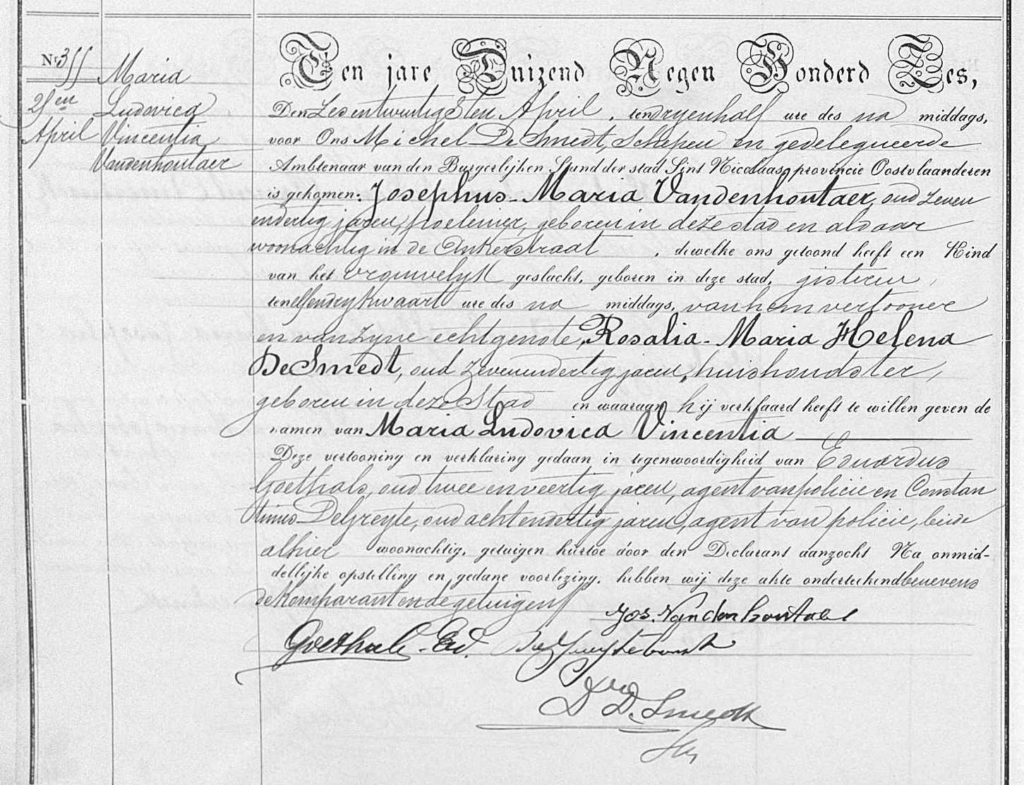 Nr. 355
Maria
Ludovica
Vincentia
Vandenhoutaer
April
Ten jare Duizend Negen Honderd Zes,
Den Zeventwintigsten April, ten dryenhalf ure des na middags,
voor Ons Michel De Smedt, Schepen en gedelegueerde
Ambtenaar van den Burgerlijken Stand der stad Sint Nicolaas, provincie Oostvlaanderen
is gekomen: Josephus-Maria Vandenhoutaer, oud zeven
endertig jaren, hoelener, geboren in deze stad en aldaar
woonachtig in de Ankerstraat, dewelke ons getoond heeft een Kind
van het vrouwelyk geslacht, geboren in deze stad, gisteren,
ten elfendrykwaart ure des na middags, van hem vertooner
en van zyne echtgenote, Rosalia-Maria Helena
De Smedt, oud zevenendertig jaren, huishoudster,
geboren in deze Stad en waaraan hij verklaard heeft te willen geven de
namen van Maria Ludovica Vincentia
Deze vertooning en verklaring gedaan in tegenwoordigheid van Eduardus
Goethals, oud twee en veertig jaren, agent van policie en Constan
tinus oud achtendertig jaren, agent van policie, beide
alhier woonachtig, getuigen hiertoe door den Declarant aanzocht Na onmid-
dellijke opstelling en gedane voorlezing, hebben wij deze akte onderteekend benevens
de komparant en de getuigen
Jos. Vandenhoutaer
Goethals Ed.
Dr. D. Smedt